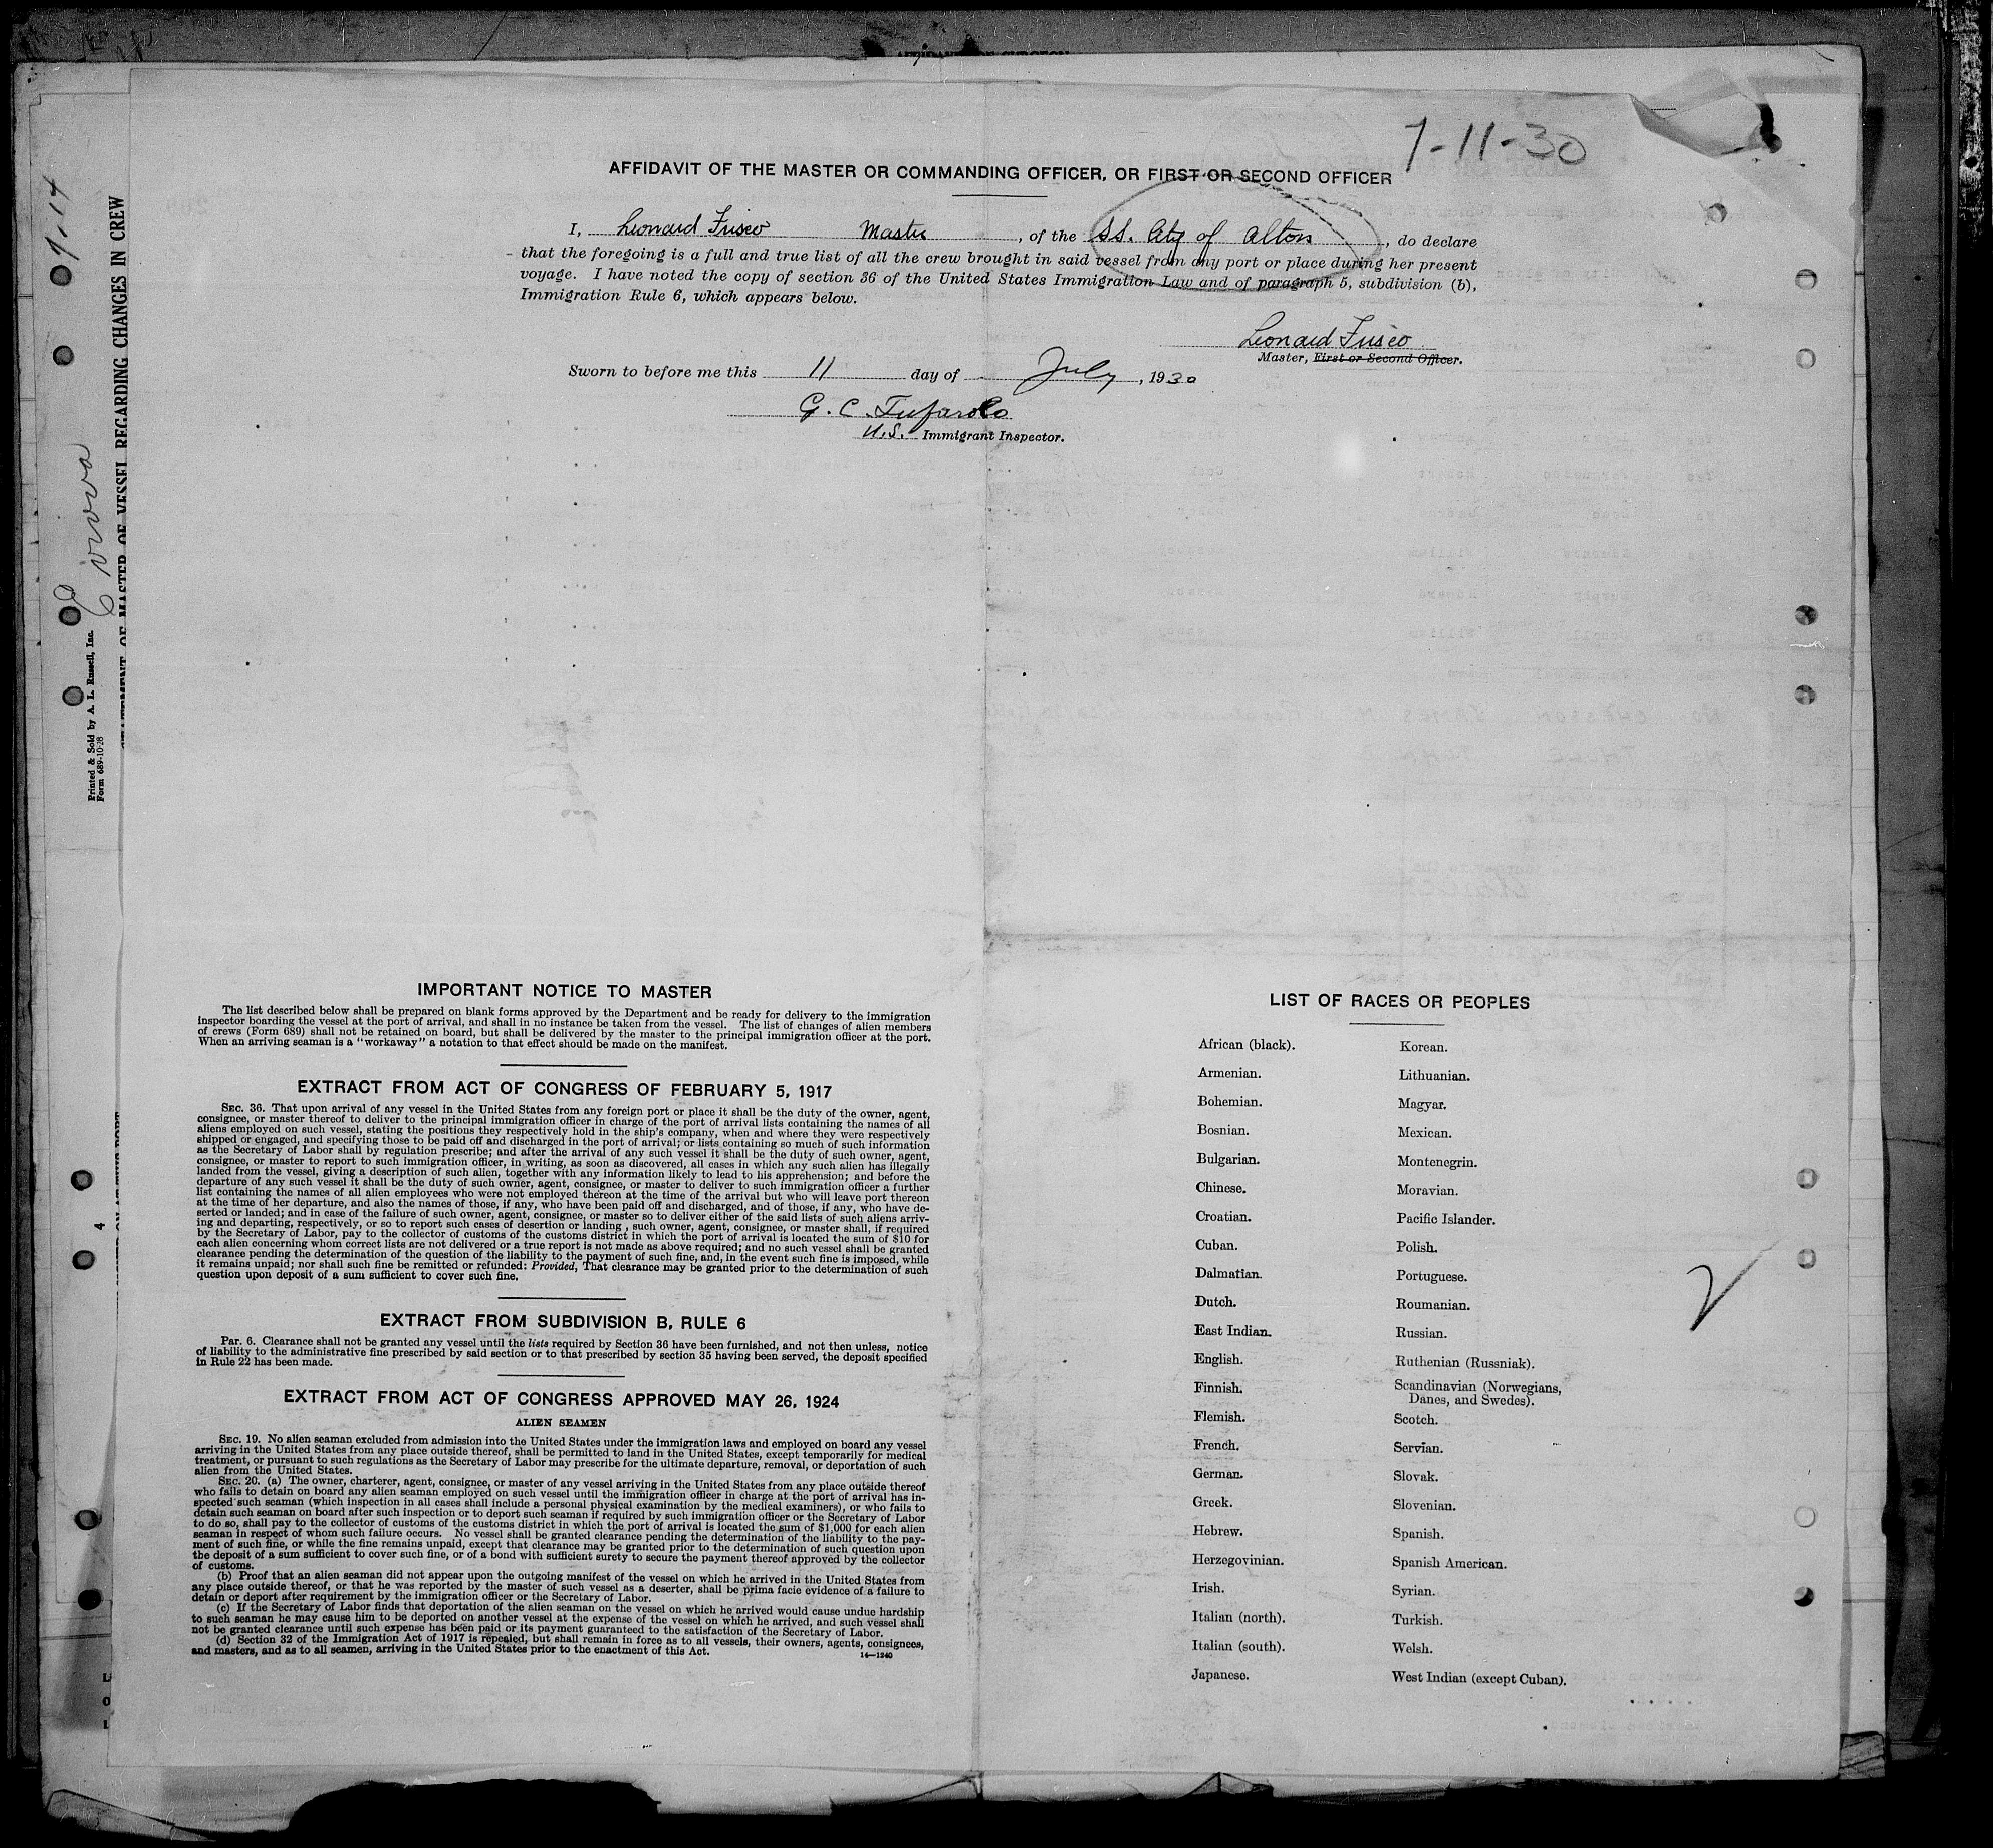 7-11-30
AFFIDAVIT OF THE MASTER OR COMMANDING OFFICER, OR FIRST OR SECOND OFFICER
I, Leonard Fusco Master, of the SS. City of Alton, do declare
that the foregoing is a full and true list of all the crew brought in said vessel from any port or place during her present
voyage. I have noted the copy of section 36 of the United States Immigration Law and of paragraph 5, subdivision (b),
Immigration Rule 6, which appears below.
Leonard Fusco
Master, First or Second Officer.
Sworn to before me this 11 day of July, 1930
G. C. Tufarolo
U.S. Immigrant Inspector.
IMPORTANT NOTICE TO MASTER
The list described below shall be prepared on blank forms approved by the Department and be ready for delivery to the immigration
inspector boarding the vessel at the port of arrival, and shall in no instance be taken from the vessel. The list of changes of alien members
of crews (Form 689) shall not be retained on board, but shall be delivered by the master to the principal immigration officer at the port.
When an arriving seaman is a "workaway" a notation to that effect should be made on the manifest.
EXTRACT FROM ACT OF CONGRESS OF FEBRUARY 5, 1917
SEC. 36. That upon arrival of any vessel in the United States from any foreign port or place it shall be the duty of the owner, agent,
consignee, or master thereof to deliver to the principal immigration officer in charge of the port of arrival lists containing the names of all
aliens employed on such vessel, stating the positions they respectively hold in the ship's company, when and where they were respectively
shipped or engaged, and specifying those to be paid off and discharged in the port of arrival; or lists containing so much of such information
as the Secretary of Labor shall by regulation prescribe; and after the arrival of any such vessel it shall be the duty of such owner, agent,
consignee, or master to report to such immigration officer, in writing, as soon as discovered, all cases in which any such alien has illegally
landed from the vessel, giving a description of such alien, together with any information likely to lead to his apprehension; and before the
departure of any such vessel it shall be the duty of such owner, agent, consignee, or master to deliver to such immigration officer a further
list containing the names of all alien employees who were not employed thereon at the time of the arrival but who will leave port thereon
at the time of her departure, and also the names of those, if any, who have been paid off and discharged, and of those, if any, who have de-
serted or landed; and in case of the failure of such owner, agent, consignee, or master so to deliver either of the said lists of such aliens arriv-
ing and departing, respectively, or so to report such cases of desertion or landing, such owner, agent, consignee, or master shall, if required
by the Secretary of Labor, pay to the collector of customs of the customs district in which the port of arrival is located the sum of $10 for
each alien concerning whom correct lists are not delivered or a true report is not made as above required; and no such vessel shall be granted
clearance pending the determination of the question of the liability to the payment of such fine, and, in the event such fine is imposed, while
it remains unpaid; nor shall such fine be remitted or refunded: Provided, That clearance may be granted prior to the determination of such
question upon deposit of a sum sufficient to cover such fine.
EXTRACT FROM SUBDIVISION B, RULE 6
Par. 6. Clearance shall not be granted any vessel until the lists required by Section 36 have been furnished, and not then unless, notice
of liability to the administrative fine prescribed by said section or to that prescribed by section 35 having been served, the deposit specified
in Rule 22 has been made.
EXTRACT FROM ACT OF CONGRESS APPROVED MAY 26, 1924
ALIEN SEAMEN
SEC. 19. No alien seaman excluded from admission into the United States under the immigration laws and employed on board any vessel
arriving in the United States from any place outside thereof, shall be permitted to land in the United States, except temporarily for medical
treatment, or pursuant to such regulations as the Secretary of Labor may prescribe for the ultimate departure, removal, or deportation of such
alien from the United States.
SEC. 20. (a) The owner, charterer, agent, consignee, or master of any vessel arriving in the United States from any place outside thereof
who fails to detain on board any alien seaman employed on such vessel until the immigration officer in charge at the port of arrival has in-
spected such seaman (which inspection in all cases shall include a personal physical examination by the medical examiners), or who fails to
detain such seaman on board after such inspection or to deport such seaman if required by such immigration officer or the Secretary of Labor
to do so, shall pay to the collector of customs of the customs district in which the port of arrival is located the sum of $1,000 for each alien
seaman in respect of whom such failure occurs. No vessel shall be granted clearance pending the determination of the liability to the pay-
ment of such fine, or while the fine remains unpaid, except that clearance may be granted prior to the determination of such question upon
the deposit of a sum sufficient to cover such fine, or of a bond with sufficient surety to secure the payment thereof approved by the collector
of customs.
(b) Proof that an alien seaman did not appear upon the outgoing manifest of the vessel on which he arrived in the United States from
any place outside thereof, or that he was reported by the master of such vessel as a deserter, shall be prima facie evidence of a failure to
detain or deport after requirement by the immigration officer or the Secretary of Labor.
(c) If the Secretary of Labor finds that deportation of the alien seaman on the vessel on which he arrived would cause undue hardship
to such seaman he may cause him to be deported on another vessel at the expense of the vessel on which he arrived, and such vessel shall
not be granted clearance until such expense has been paid or its payment guaranteed to the satisfaction of the Secretary of Labor.
(d) Section 32 of the Immigration Act of 1917 is repealed, but shall remain in force as to all vessels, their owners, agents, consignees,
and masters, and as to all seamen, arriving in the United States prior to the enactment of this Act.
14—1240
LIST OF RACES OR PEOPLES
African (black). Korean.
Armenian. Lithuanian.
Bohemian. Magyar.
Bosnian. Mexican.
Bulgarian. Montenegrin.
Chinese. Moravian.
Croatian. Pacific Islander.
Cuban. Polish.
Dalmatian. Portuguese.
Dutch. Roumanian.
East Indian. Russian.
English. Ruthenian (Russniak).
Finnish. Scandinavian (Norwegians,
Danes, and Swedes).
Flemish. Scotch.
French. Servian.
German. Slovak.
Greek. Slovenian.
Hebrew. Spanish.
Herzegovinian. Spanish American.
Irish. Syrian.
Italian (north). Turkish.
Italian (south). Welsh.
Japanese. West Indian (except Cuban).
STATEMENT OF MASTER OF VESSEL REGARDING CHANGES IN CREW
Printed & Sold by A. L. Russell, Inc.
Form 689-10-28
4